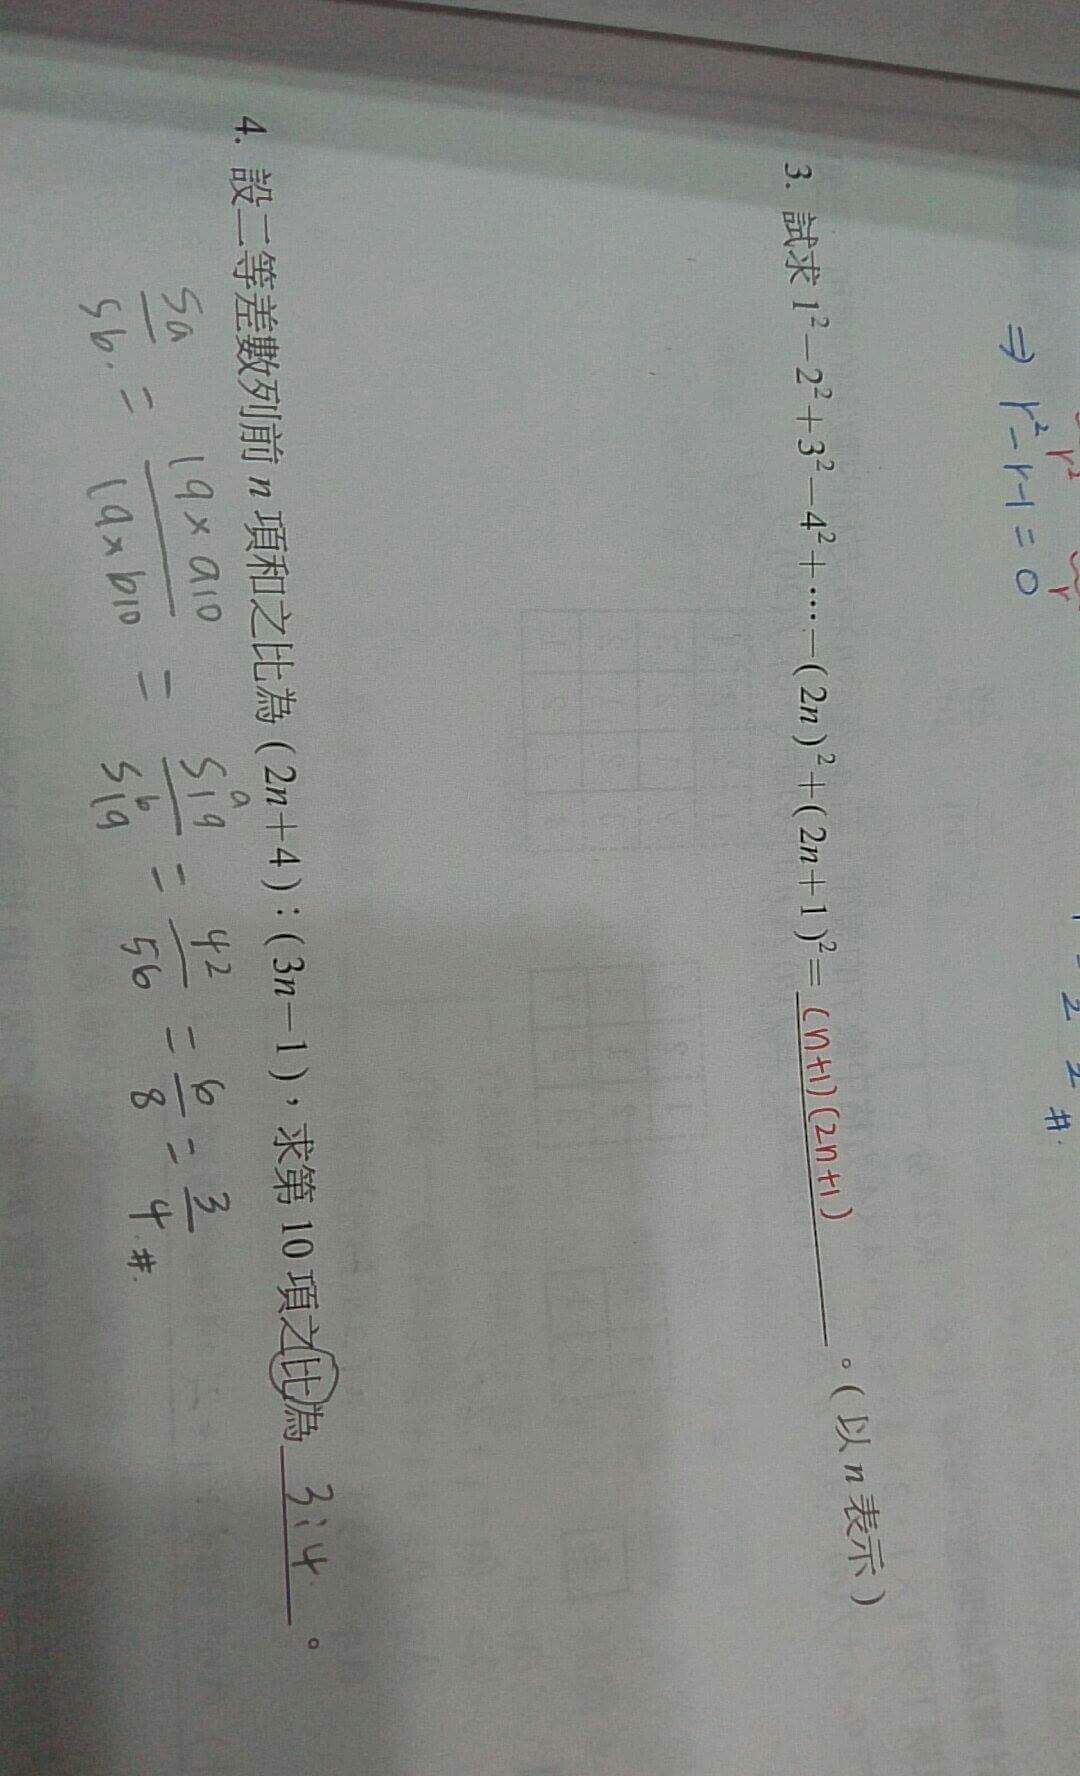 r² r
⇒ r²-r-1=0
2 2 #.
3. 試求 1²-2²+3²-4²+⋯-(2n)²+(2n+1)²=(n+1)(2n+1)。(以 n 表示)
4. 設二等差數列前 n 項和之比為 (2n+4):(3n-1),求第 10 項之比為 3:4。
Sa/Sb. = 19×a10/19×b10 = S19a/S19b = 42/56 = 6/8 = 3/4 #.